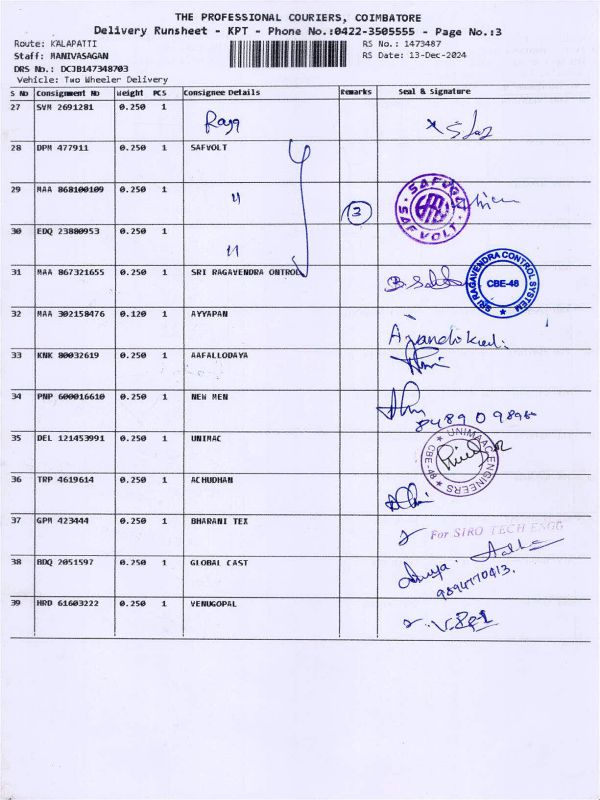 THE PROFESSIONAL COURIERS, COIMBATORE
Delivery Runsheet - KPT - Phone No.:0422-3505555 - Page No.:3
Route: KALAPATTI
RS No.: 1473487
Staff: MANIVASAGAN
RS Date: 13-Dec-2024
DRS No.: DCJB147348703
Vehicle: Two Wheeler Delivery
S No Consignment No Weight PCS Consignee Details Remarks Seal & Signature
27 SVM 2691281 0.250 1
28 DPM 477911 0.250 1 SAFVOLT
29 MAA 868100109 0.250 1 "
3
SAFVOLT
30 EDQ 23880953 0.250 1 "
31 MAA 867321655 0.250 1 SRI RAGAVENDRA ONTROL
SRI RAGAVENDRA CONTROL SYSTEM
CBE-48
32 MAA 302158476 0.120 1 AYYAPAN
33 KNK 80032619 0.250 1 AAFALLODAYA
34 PNP 600016610 0.250 1 NEW MEN
35 DEL 121453991 0.250 1 UNIMAC
UNIMAAC ENGINEERS
CBE-48
36 TRP 4619614 0.250 1 ACHUDHAN
37 GPM 423444 0.250 1 BHARANI TEX
For SIRO TECH ENGG
38 BDQ 2051597 0.250 1 GLOBAL CAST
39 HRD 61603222 0.250 1 VENUGOPAL